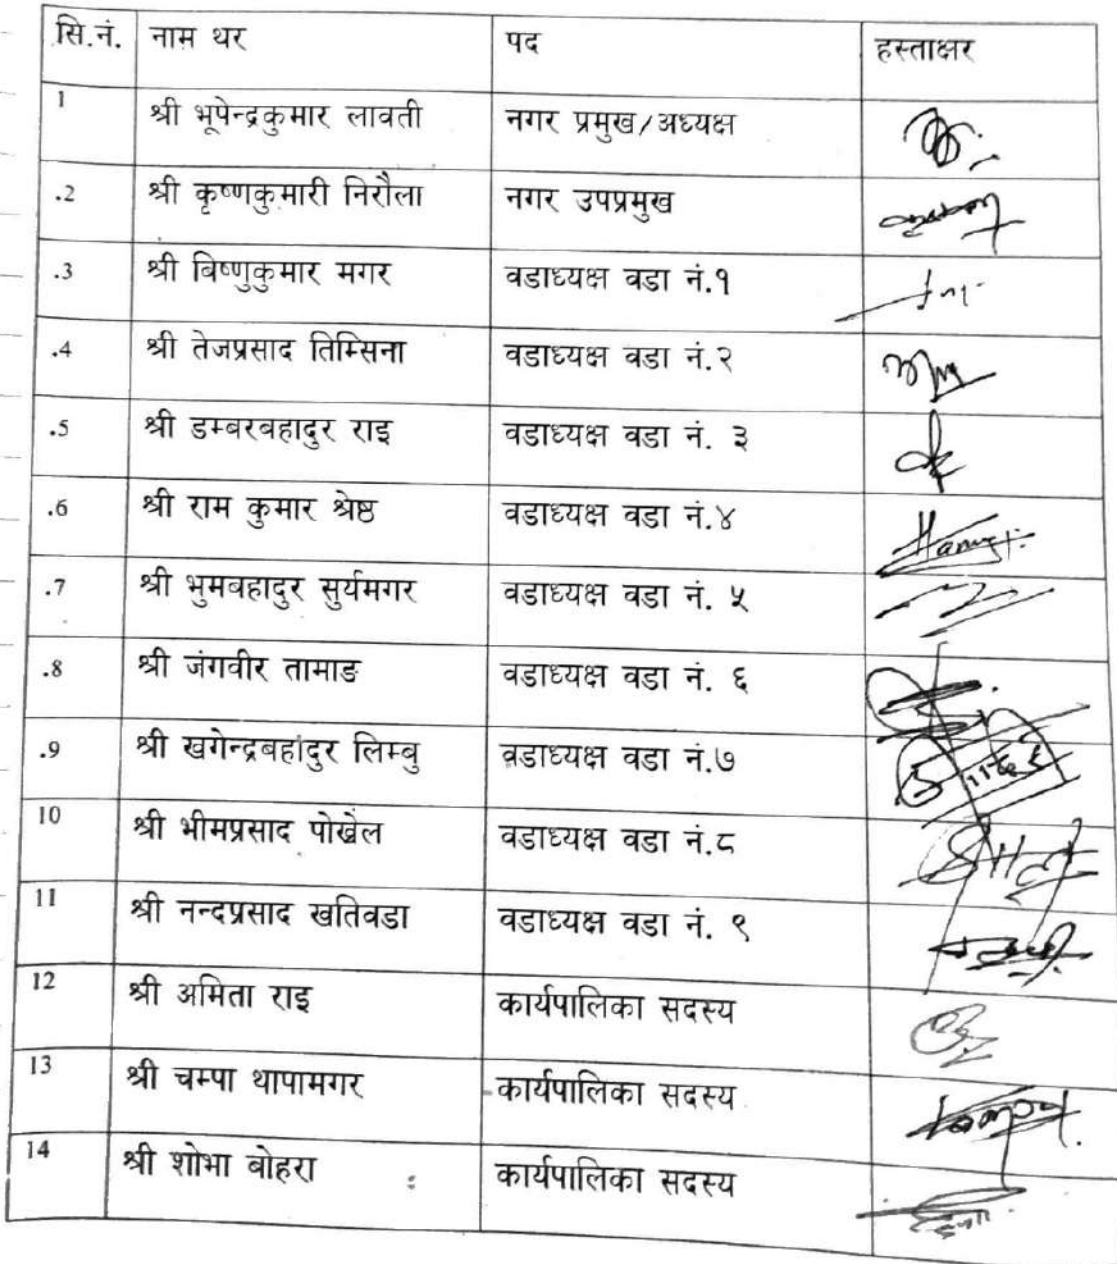 सि.नं. नाम थर पद हस्ताक्षर
1 श्री भूपेन्द्रकुमार लावती नगर प्रमुख/अध्यक्ष
.2 श्री कृष्णकुमारी निरौला नगर उपप्रमुख
.3 श्री बिष्णुकुमार मगर वडाध्यक्ष वडा नं.१
.4 श्री तेजप्रसाद तिम्सिना वडाध्यक्ष वडा नं.२
.5 श्री डम्बरबहादुर राइ वडाध्यक्ष वडा नं. ३
.6 श्री राम कुमार श्रेष्ठ वडाध्यक्ष वडा नं.४
.7 श्री भुमबहादुर सुर्यमगर वडाध्यक्ष वडा नं. ५
.8 श्री जंगवीर तामाङ वडाध्यक्ष वडा नं. ६
.9 श्री खगेन्द्रबहादुर लिम्बु वडाध्यक्ष वडा नं.७
10 श्री भीमप्रसाद पोखेल वडाध्यक्ष वडा नं.८
11 श्री नन्दप्रसाद खतिवडा वडाध्यक्ष वडा नं. ९
12 श्री अमिता राइ कार्यपालिका सदस्य
13 श्री चम्पा थापामगर कार्यपालिका सदस्य
14 श्री शोभा बोहरा कार्यपालिका सदस्य